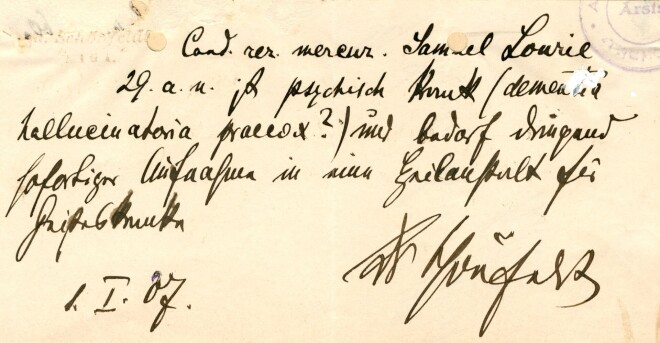 Cand. rer. mercur. Samuel Lourie
29. a. n. ist psychisch krank (dementia
hallucinatoria praecox?) und bedarf dringend
sofortiger Aufnahme in eine Heilanstalt für
Geisteskranke
1. I. 07.